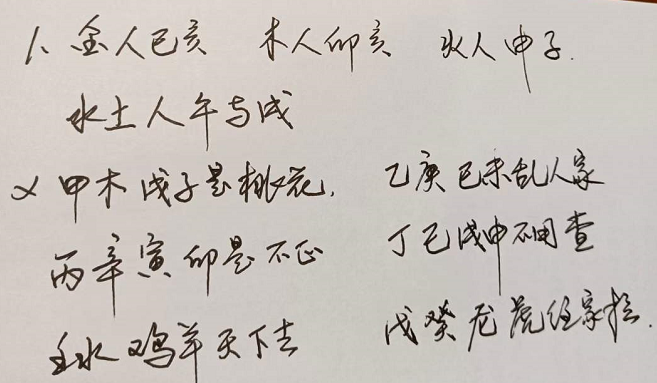 1、金人巳亥 木人卯亥 火人申子.
水土人午与戌
2 甲木戌子是桃花, 乙庚巳未乱人家
丙辛寅卯是不正 丁己戌申不用查
壬水鸡羊天下去 戊癸龙虎往家拉.